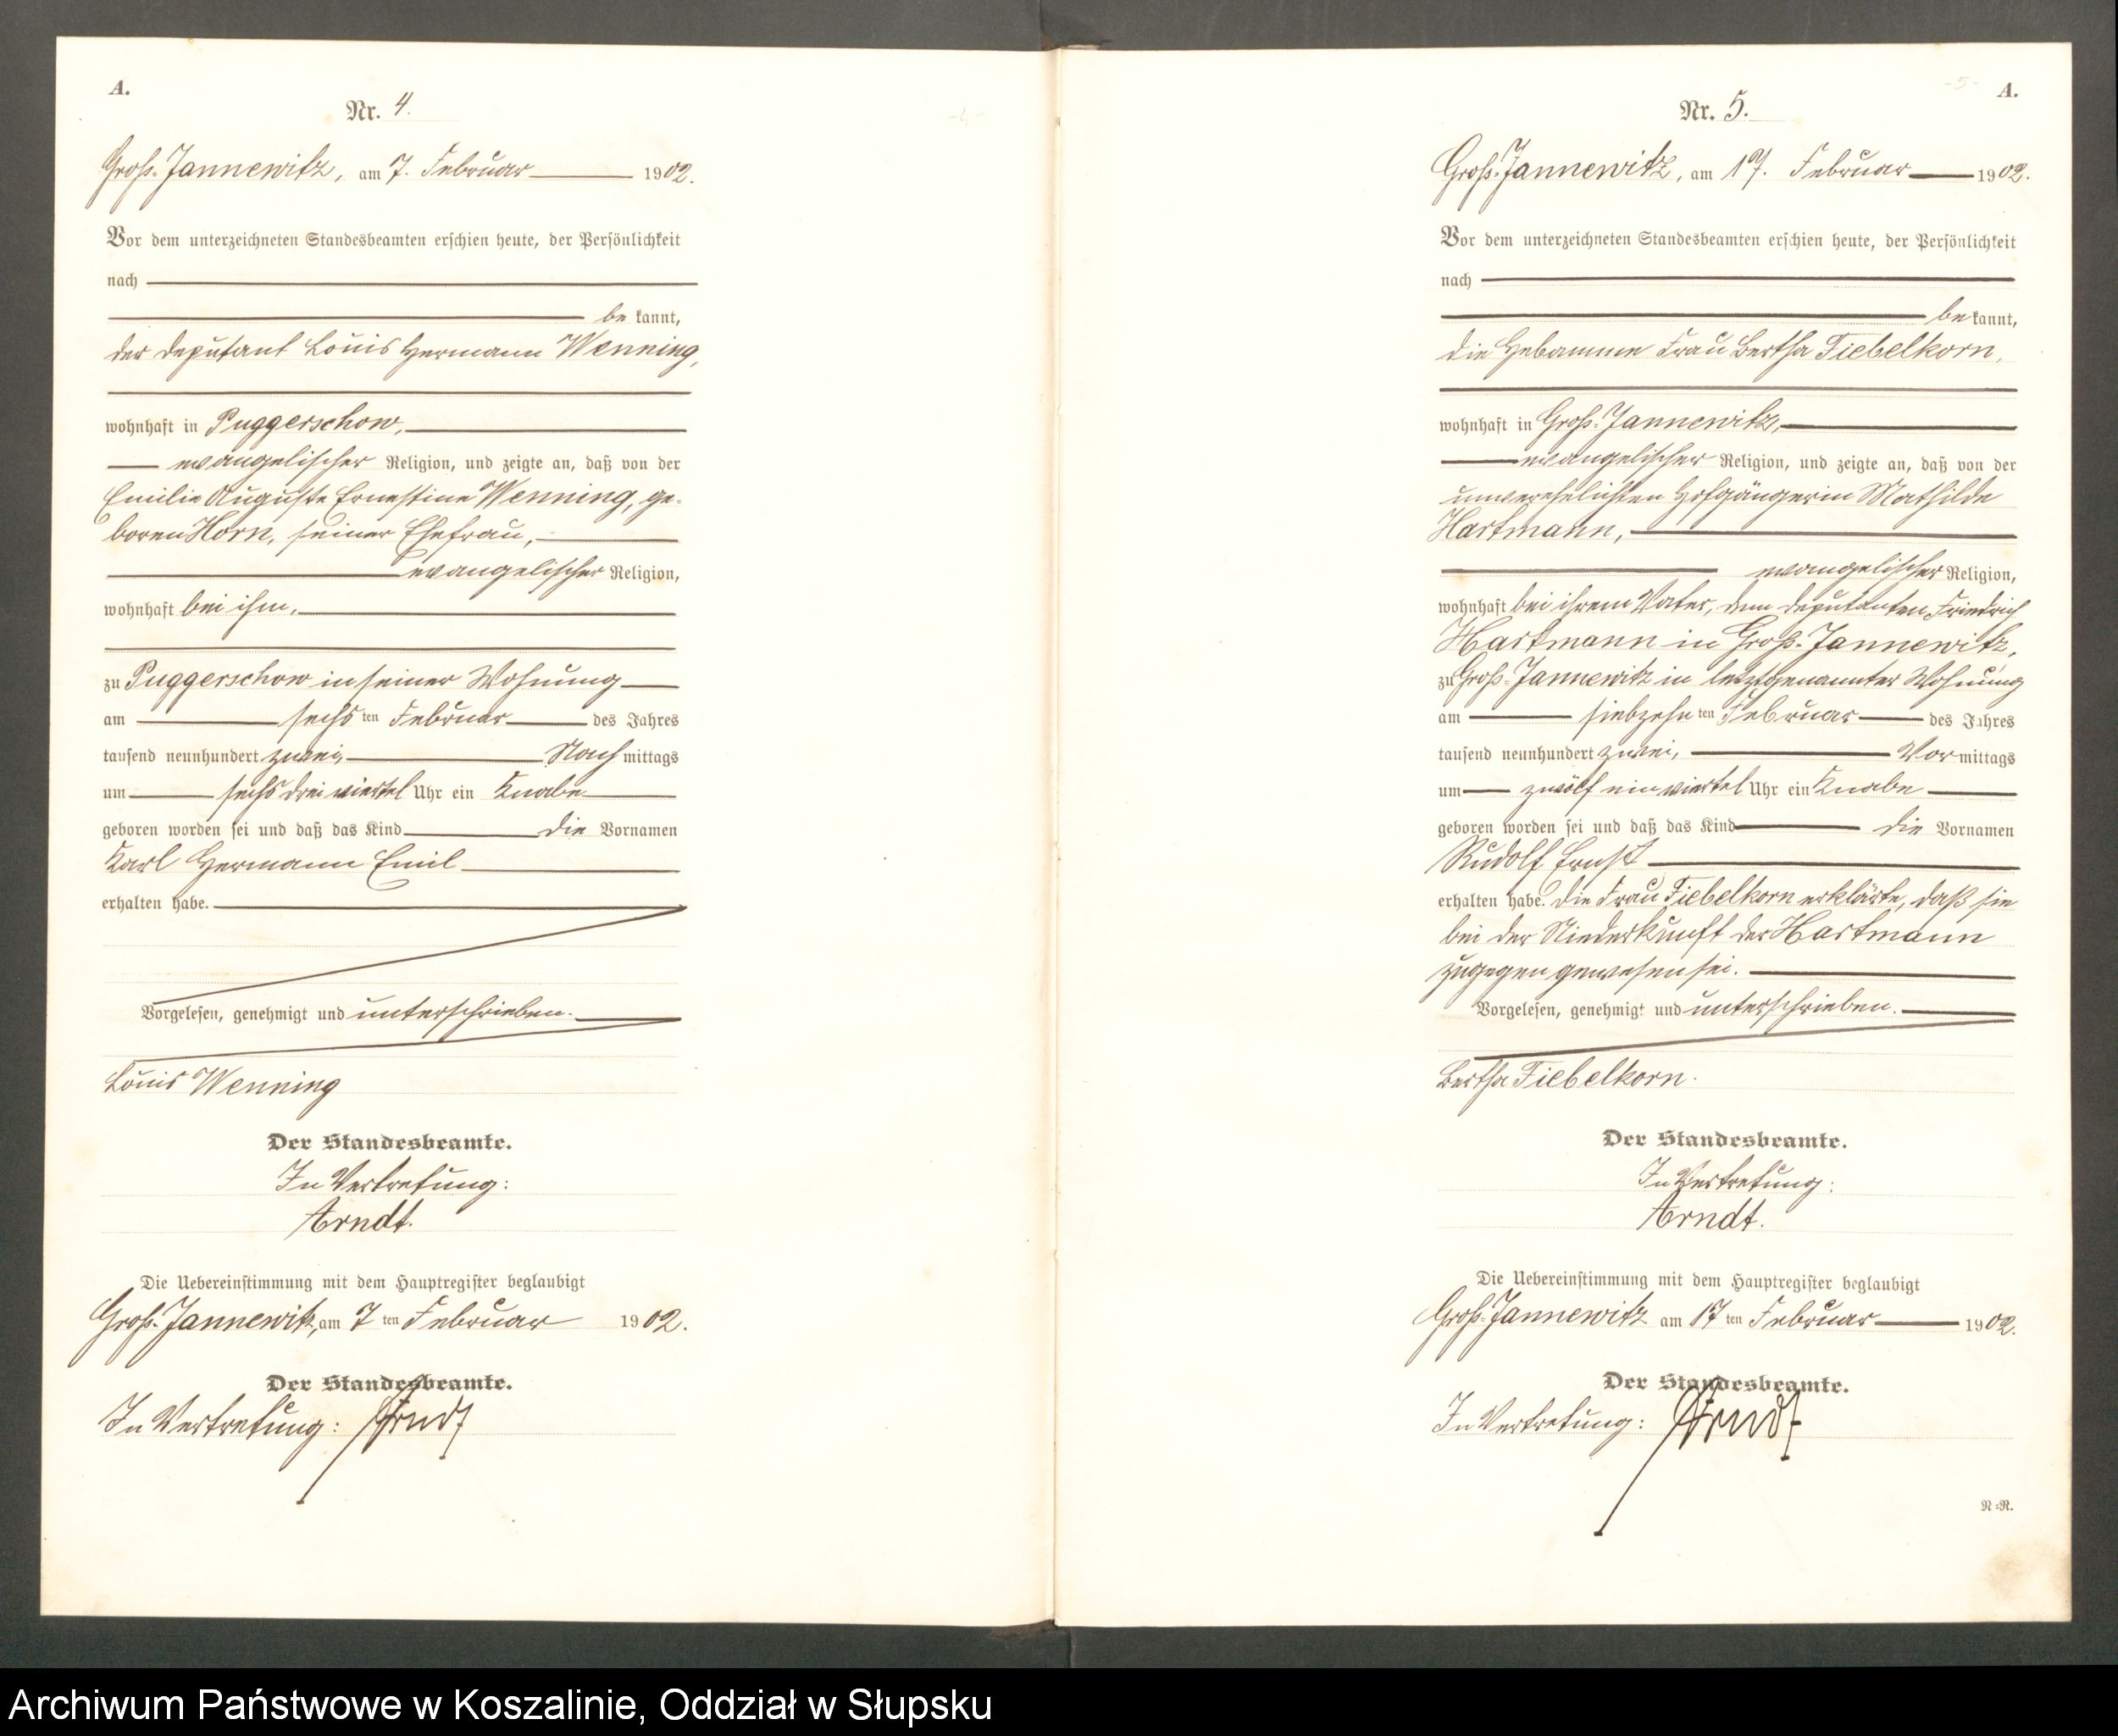 A.
Nr. 4.
Groß-Jannewitz, am 7. Februar 1902.
Vor dem unterzeichneten Standesbeamten erschien heute, der Persönlichkeit
nach
bekannt,
der Deputant Louis Hermann Wenning,
wohnhaft in Puggerschow,
evangelischer Religion, und zeigte an, daß von der
Emilie Auguste Ernestine Wenning, ge-
boren Horn, seiner Ehefrau,
evangelischer Religion,
wohnhaft bei ihm,
zu Puggerschow in seiner Wohnung
am sechsten Februar des Jahres
tausend neunhundert zwei, Nachmittags
um sechs drei viertel Uhr ein Knabe
geboren worden sei und daß das Kind die Vornamen
Karl Hermann Emil
erhalten habe.
Vorgelesen, genehmigt und unterschrieben.
Louis Wenning
Der Standesbeamte.
In Vertretung:
Arndt.
Die Uebereinstimmung mit dem Hauptregister beglaubigt
Groß-Jannewitz, am 7ten Februar 1902.
Der Standesbeamte.
In Vertretung: Arndt
-4-
-5-
A.
Nr. 5.
Groß-Jannewitz, am 17. Februar 1902.
Vor dem unterzeichneten Standesbeamten erschien heute, der Persönlichkeit
nach
bekannt,
die Hebamme Frau Bertha Fiebelkorn,
wohnhaft in Groß-Jannewitz,
evangelischer Religion, und zeigte an, daß von der
unverehelichten Hofgängerin Mathilde
Hartmann,
evangelischer Religion,
wohnhaft bei ihrem Vater, dem Deputanten Friedrich
Hartmann in Groß-Jannewitz,
zu Groß-Jannewitz in letztgenannter Wohnung
am siebzehnten Februar des Jahres
tausend neunhundert zwei, Vormittags
um zwölf ein viertel Uhr ein Knabe
geboren worden sei und daß das Kind die Vornamen
Rudolf Ernst
erhalten habe. Die Frau Fiebelkorn erklärte, daß sie
bei der Niederkunft der Hartmann
zugegen gewesen sei.
Vorgelesen, genehmigt und unterschrieben.
Bertha Fiebelkorn.
Der Standesbeamte.
In Vertretung:
Arndt.
Die Uebereinstimmung mit dem Hauptregister beglaubigt
Groß-Jannewitz am 17ten Februar 1902.
Der Standesbeamte.
In Vertretung: Arndt
N=R.
Archiwum Państwowe w Koszalinie, Oddział w Słupsku